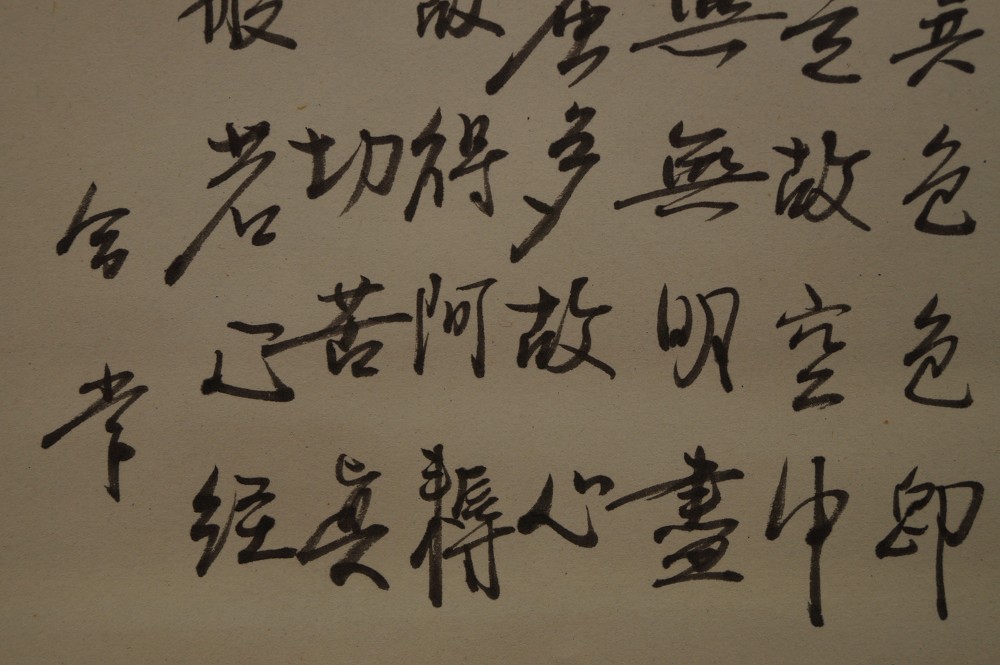 異色色即
是故空中
無無明盡
蜜多故心
故得阿耨
切苦真
般若經
合掌